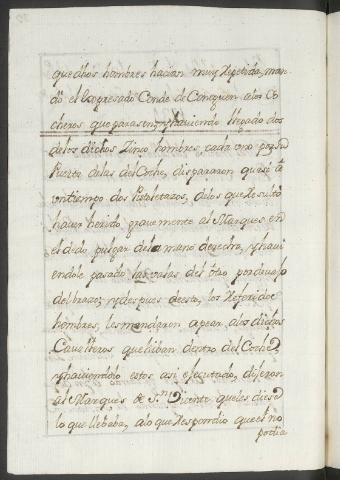 que dhos hombres hacian muy repetida, man-
dò el Expresado Conde de Consquen a los Co
cheros que parasen, y haviendo llegado dos
de los dichos Zinco hombres, cada uno por su
Puerta de las del Coche, dispararon quasi à
un tiempo dos Pistoletazos, de los que resultò
haver herido gravemente al Marques en
el dedo pulgar de la mano derecha, y havi
endole pasado las valas del otro por devajo
del brazo; y despues de esto, los referidos
hombres, les mandaron apear a los dichos
Cavalleros que hiban dentro del Coche,
y haviendolo estos asi ejecutado, dijeron
al Marques de S.n Vicente que les diese
lo que llebaba, a lo que respondio que el no
podia